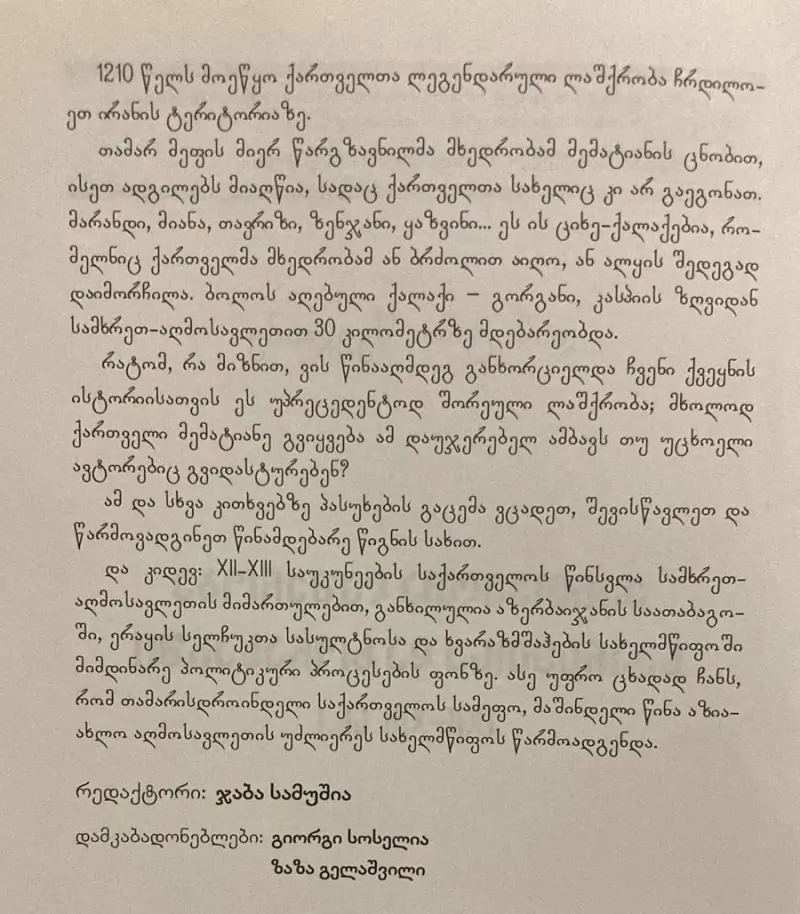 1210 წელს მოეწყო ქართველთა ლეგენდარული ლაშქრობა ჩრდილო-
ეთ ირანის ტერიტორიაზე.
თამარ მეფის მიერ წარგზავნილმა მხედრობამ მემატიანის ცნობით,
ისეთ ადგილებს მიაღწია, სადაც ქართველთა სახელიც კი არ გაეგონათ.
მარანდი, მიანა, თავრიზი, ზენჯანი, ყაზვინი... ეს ის ციხე-ქალაქებია, რო-
მელნიც ქართველმა მხედრობამ ან ბრძოლით აიღო, ან ალყის შედეგად
დაიმორჩილა. ბოლოს აღებული ქალაქი – გორგანი, კასპიის ზღვიდან
სამხრეთ-აღმოსავლეთით 30 კილომეტრზე მდებარეობდა.
რატომ, რა მიზნით, ვის წინააღმდეგ განხორციელდა ჩვენი ქვეყნის
ისტორიისათვის ეს უპრეცედენტოდ შორეული ლაშქრობა; მხოლოდ
ქართველი მემატიანე გვიყვება ამ დაუჯერებელ ამბავს თუ უცხოელი
ავტორებიც გვიდასტურებენ?
ამ და სხვა კითხვებზე პასუხების გაცემა ვცადეთ, შევისწავლეთ და
წარმოვადგინეთ წინამდებარე წიგნის სახით.
და კიდევ: XII-XIII საუკუნეების საქართველოს წინსვლა სამხრეთ-
აღმოსავლეთის მიმართულებით, განხილულია აზერბაიჯანის საათაბაგო-
ში, ერაყის სელჩუკთა სასულტნოსა და ხვარაზმშაჰების სახელმწიფოში
მიმდინარე პოლიტიკური პროცესების ფონზე. ასე უფრო ცხადად ჩანს,
რომ თამარისდროინდელი საქართველოს სამეფო, მაშინდელი წინა აზია-
ახლო აღმოსავლეთის უძლიერეს სახელმწიფოს წარმოადგენდა.
რედაქტორი: ჯაბა სამუშია
დამკაბადონებლები: გიორგი სოსელია
ზაზა გელაშვილი